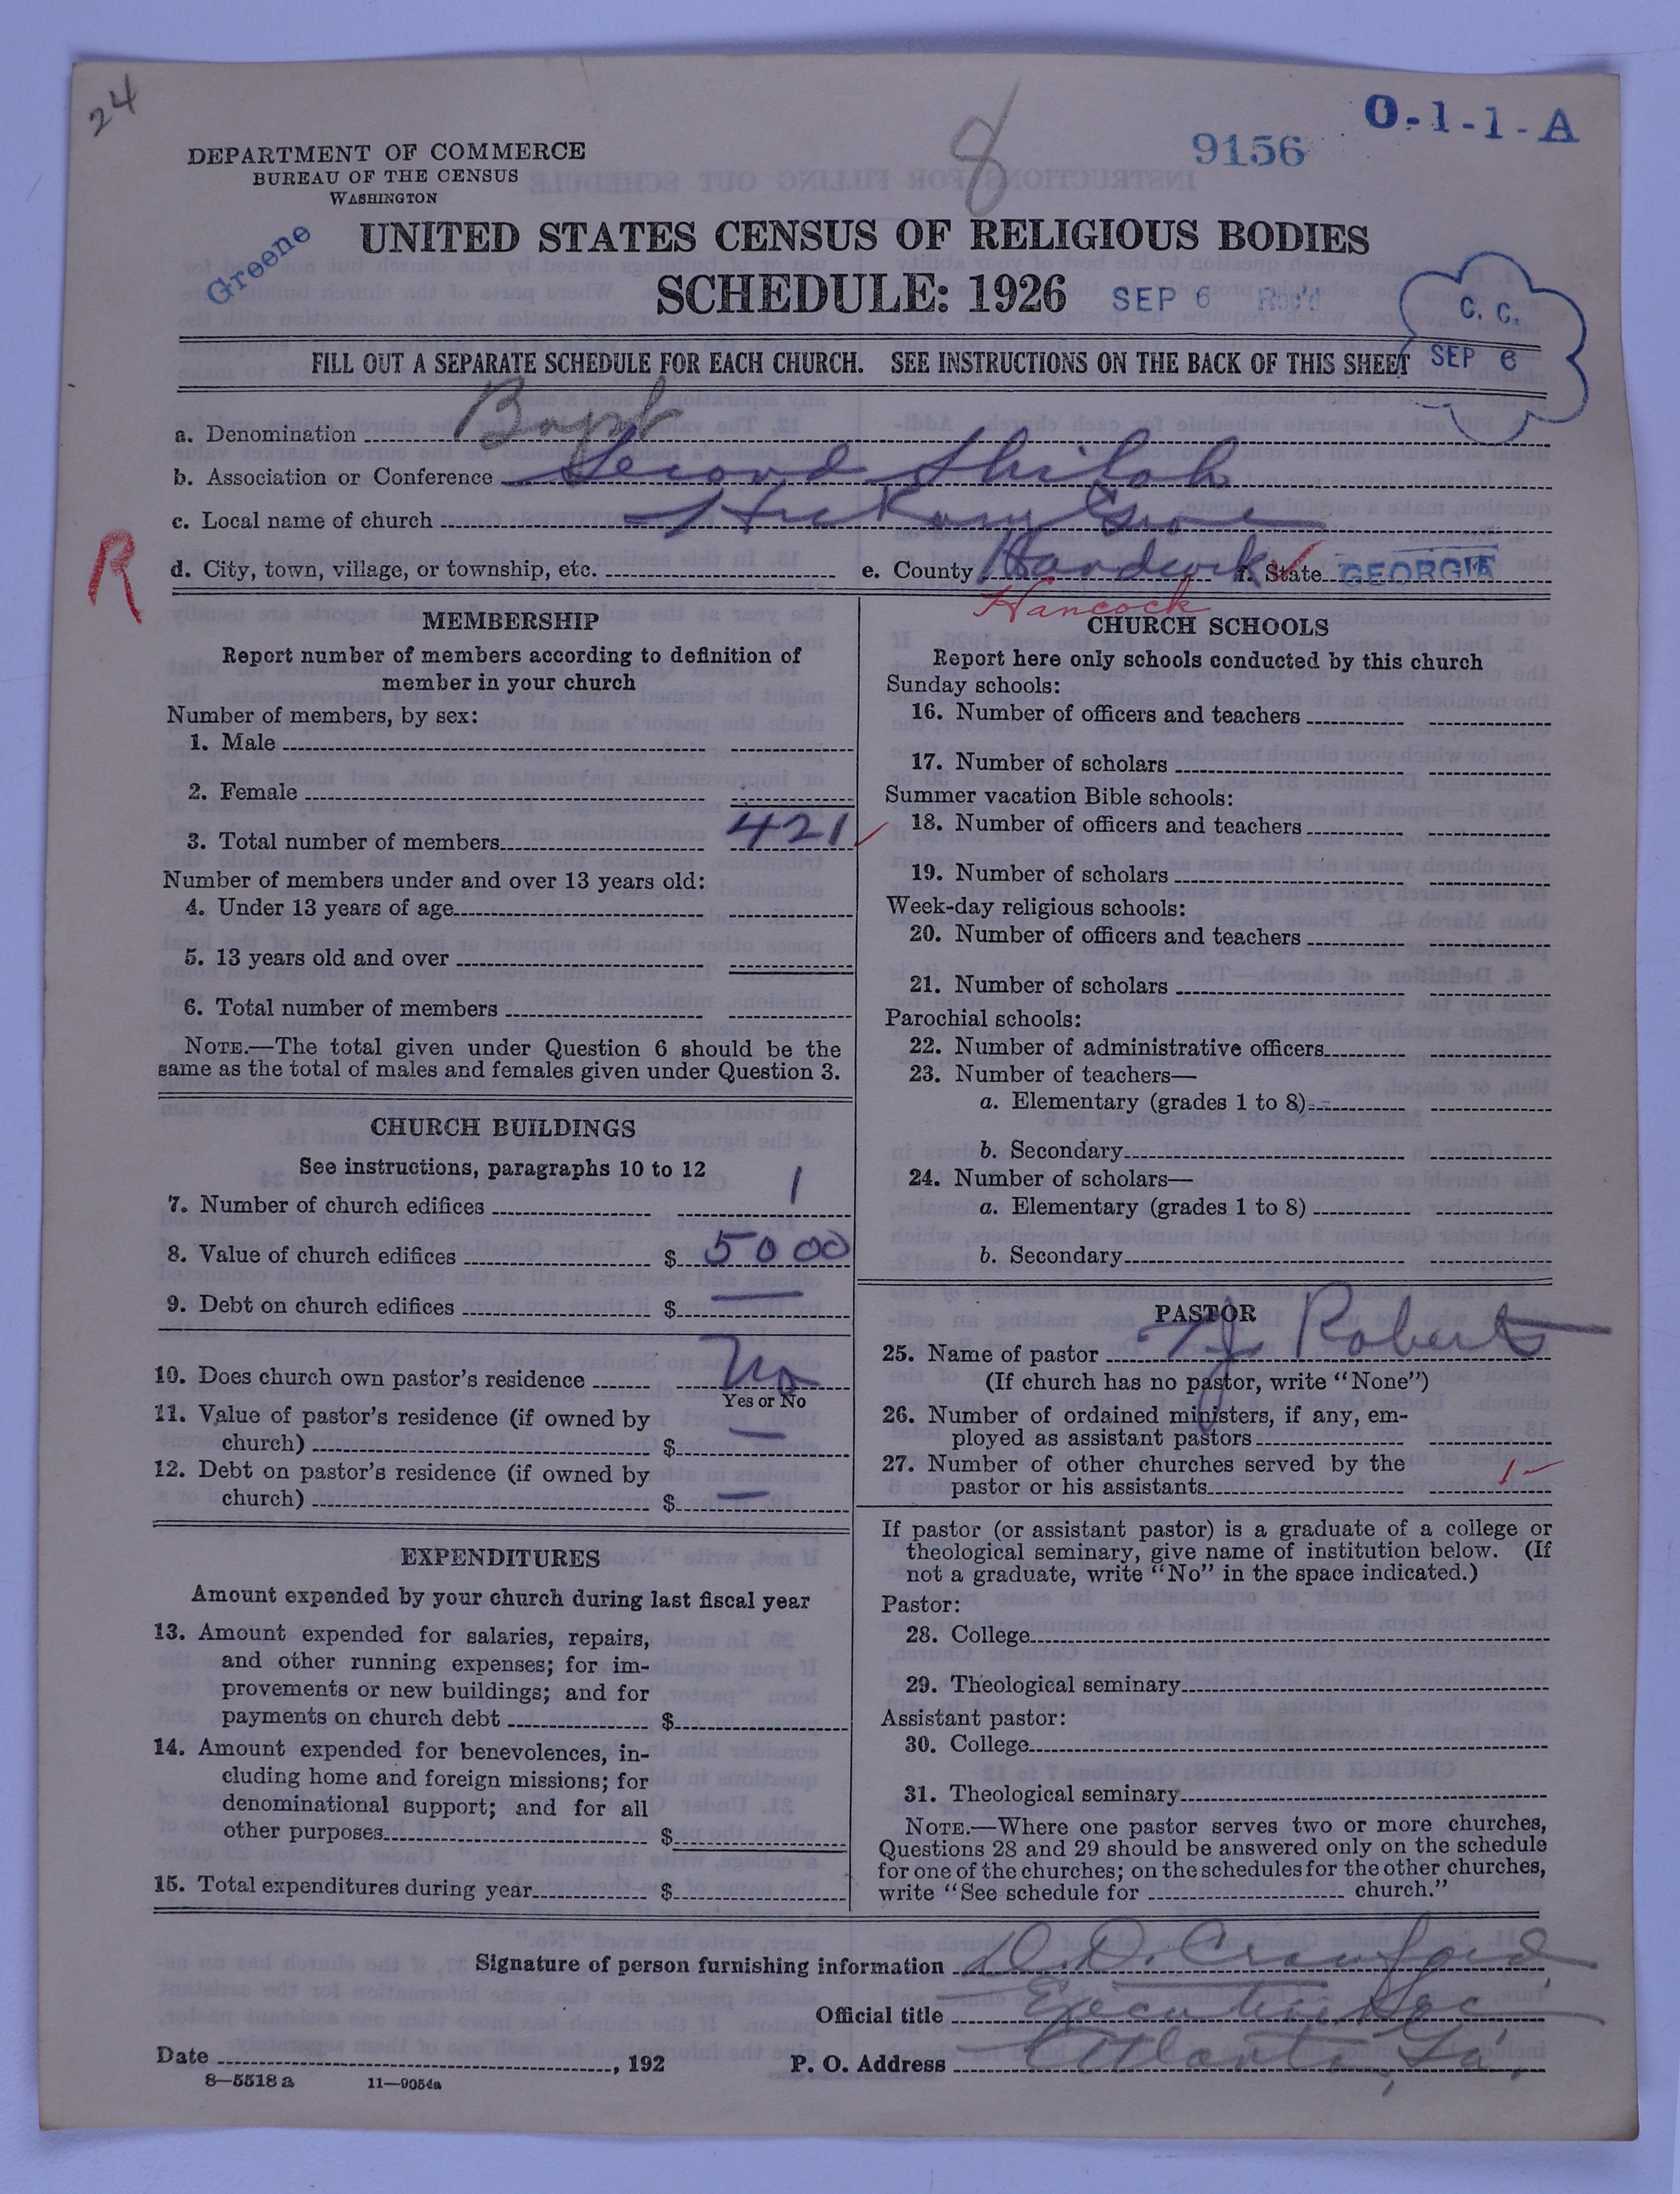 24
8
9156
O-1-1-A
DEPARTMENT OF COMMERCE
BUREAU OF THE CENSUS
WASHINGTON
Greene
UNITED STATES CENSUS OF RELIGIOUS BODIES
SCHEDULE: 1926
SEP 6 Rec'd
C. C.
SEP 6
FILL OUT A SEPARATE SCHEDULE FOR EACH CHURCH. SEE INSTRUCTIONS ON THE BACK OF THIS SHEET
a. Denomination Bapt
b. Association or Conference Second Shiloh
c. Local name of church Hickory Grove
R
d. City, town, village, or township, etc. e. County Handcock f. State GEORGIA
Hancock
MEMBERSHIP
Report number of members according to definition of
member in your church
Number of members, by sex:
1. Male
2. Female
3. Total number of members 421
Number of members under and over 13 years old:
4. Under 13 years of age
5. 13 years old and over
6. Total number of members
NOTE.—The total given under Question 6 should be the
same as the total of males and females given under Question 3.
CHURCH BUILDINGS
See instructions, paragraphs 10 to 12
7. Number of church edifices 1
8. Value of church edifices $ 5000
9. Debt on church edifices $ —
10. Does church own pastor's residence No
Yes or No
11. Value of pastor's residence (if owned by
church) $ —
12. Debt on pastor's residence (if owned by
church) $ —
EXPENDITURES
Amount expended by your church during last fiscal year
13. Amount expended for salaries, repairs,
and other running expenses; for im-
provements or new buildings; and for
payments on church debt $
14. Amount expended for benevolences, in-
cluding home and foreign missions; for
denominational support; and for all
other purposes $
15. Total expenditures during year $
CHURCH SCHOOLS
Report here only schools conducted by this church
Sunday schools:
16. Number of officers and teachers
17. Number of scholars
Summer vacation Bible schools:
18. Number of officers and teachers
19. Number of scholars
Week-day religious schools:
20. Number of officers and teachers
21. Number of scholars
Parochial schools:
22. Number of administrative officers
23. Number of teachers—
a. Elementary (grades 1 to 8)
b. Secondary
24. Number of scholars—
a. Elementary (grades 1 to 8)
b. Secondary
PASTOR
25. Name of pastor Roberts
(If church has no pastor, write "None")
26. Number of ordained ministers, if any, em-
ployed as assistant pastors
27. Number of other churches served by the
pastor or his assistants 1
If pastor (or assistant pastor) is a graduate of a college or
theological seminary, give name of institution below. (If
not a graduate, write "No" in the space indicated.)
Pastor:
28. College
29. Theological seminary
Assistant pastor:
30. College
31. Theological seminary
NOTE.—Where one pastor serves two or more churches,
Questions 28 and 29 should be answered only on the schedule
for one of the churches; on the schedules for the other churches,
write "See schedule for church."
Signature of person furnishing information D. D. Crawford
Official title Executive Sec
Date , 192
P. O. Address Atlanta, Ga.
8—5518 a 11—9054a